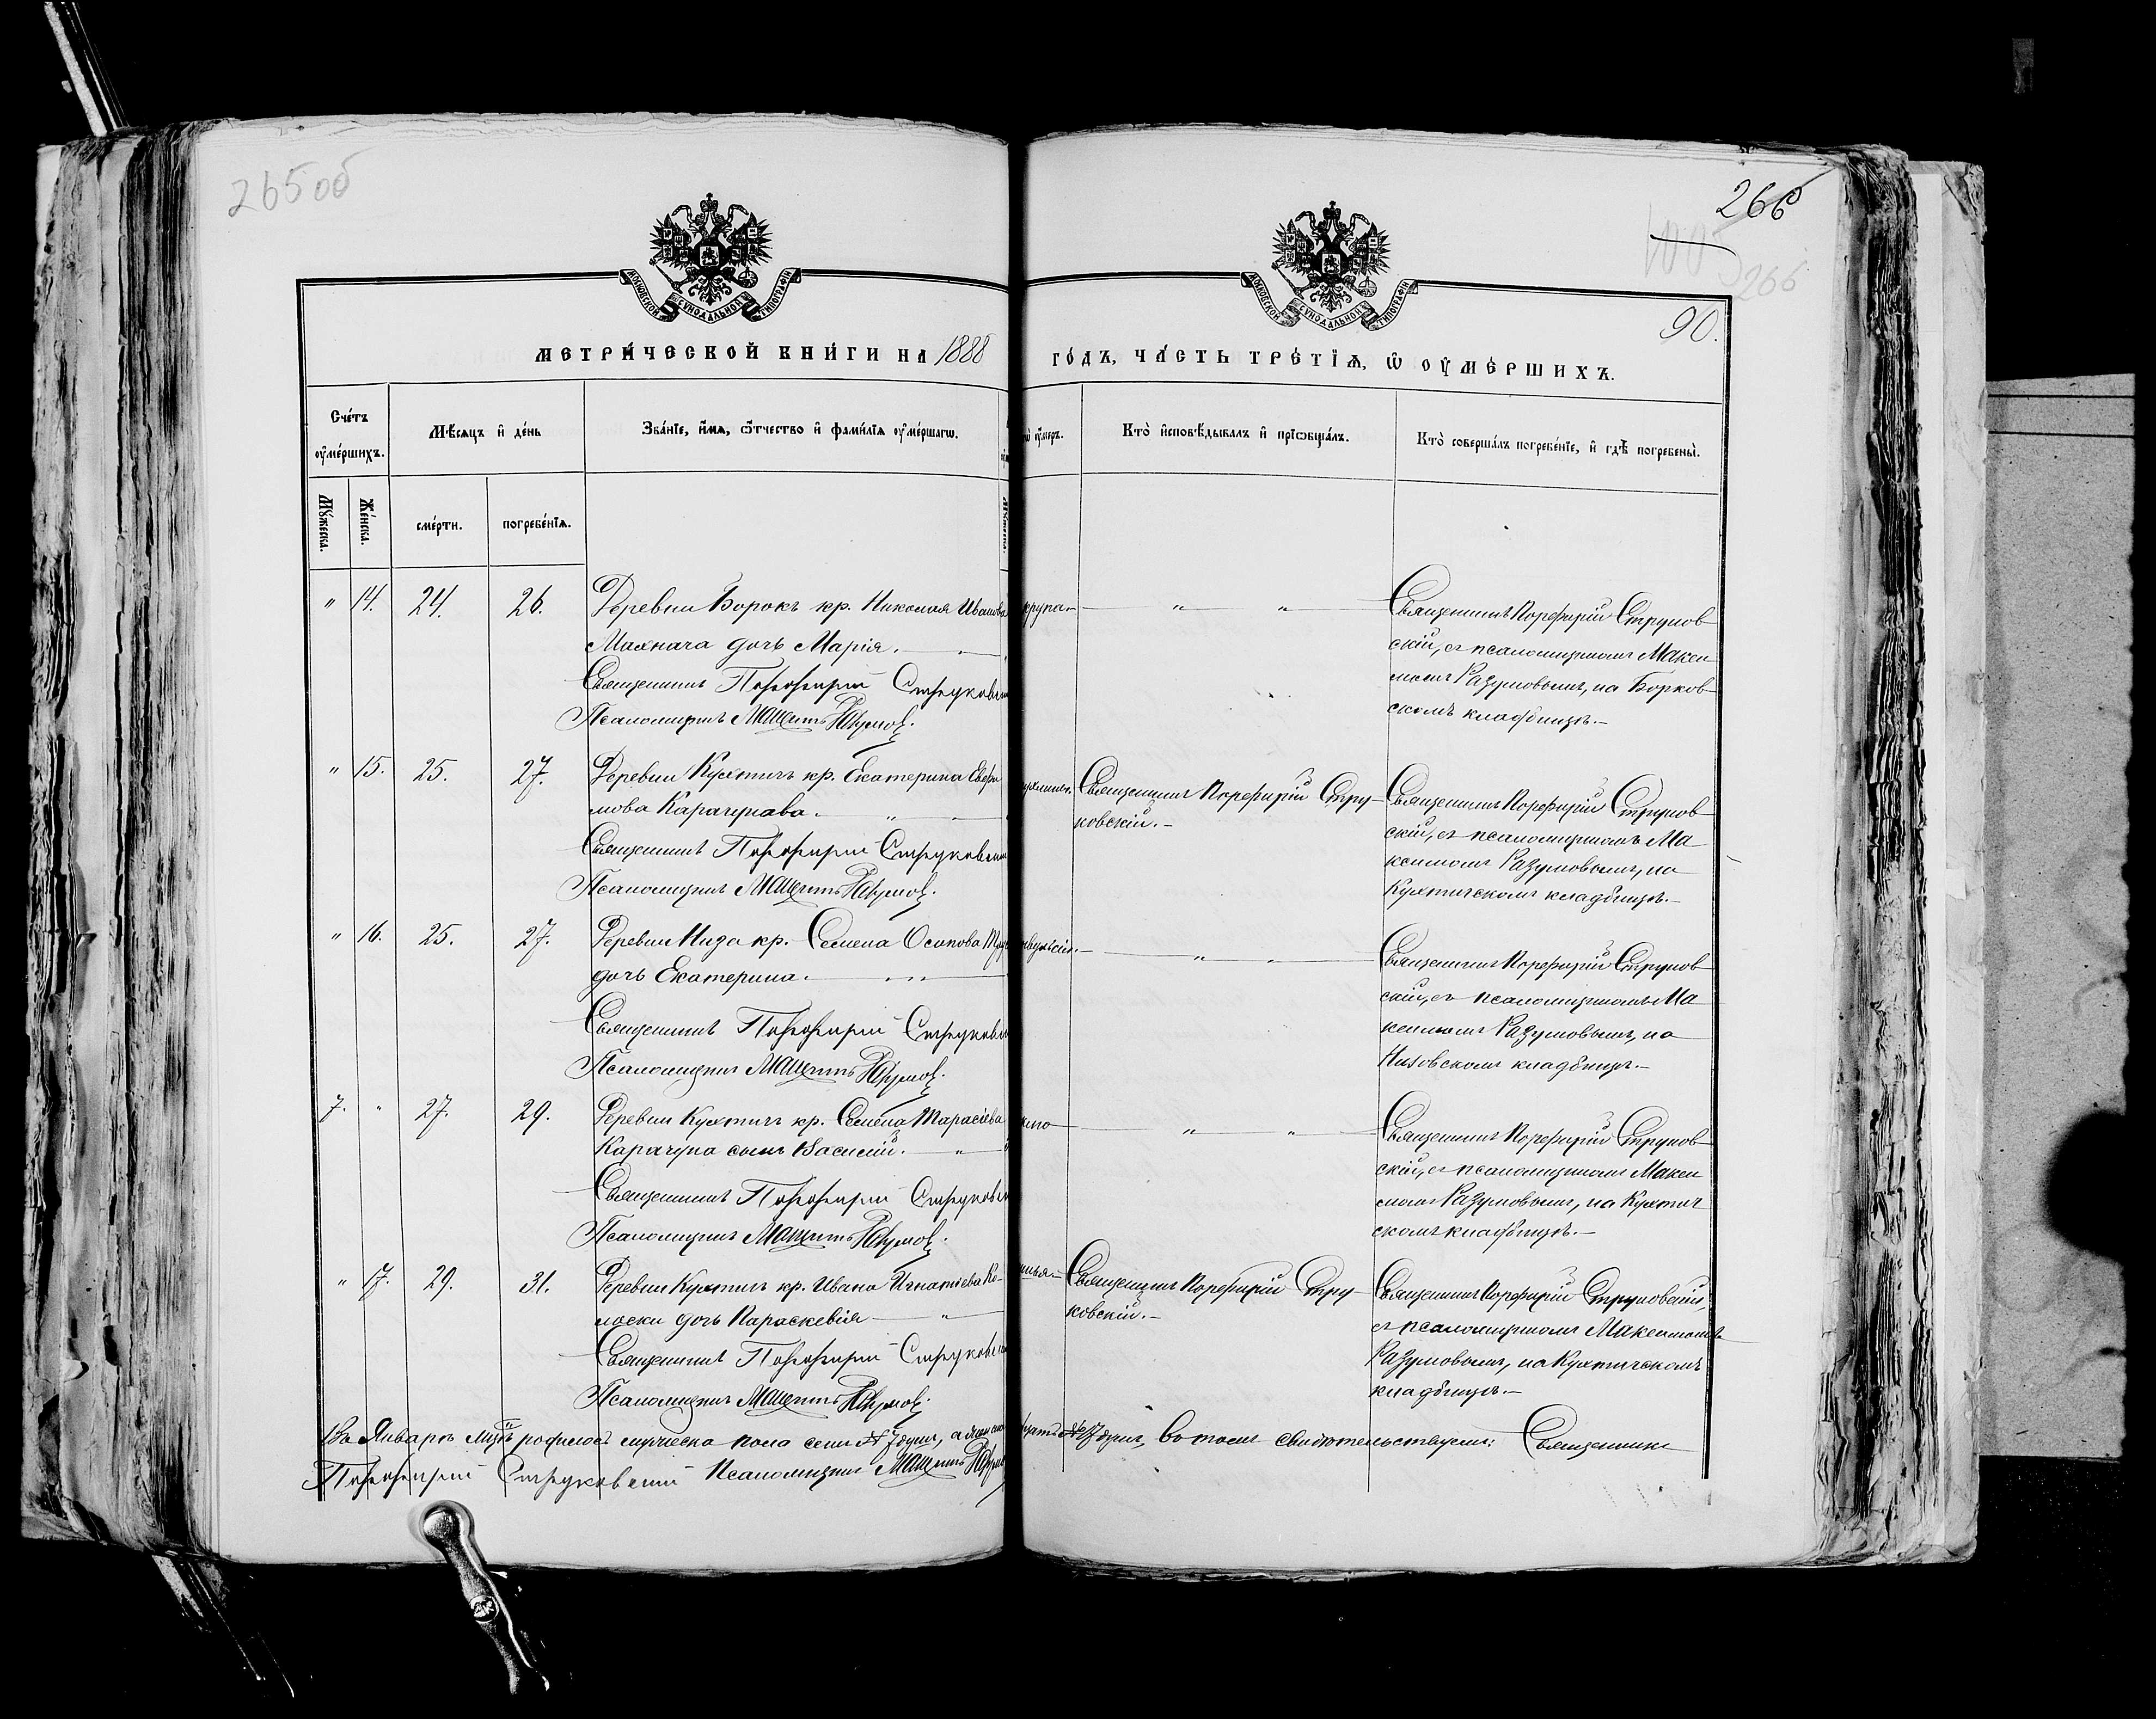 265об
266
266
90.
МОСКОВСКОЙ СѴНОДАЛЬНОЙ ТИПОГРАФІИ
МОСКОВСКОЙ СѴНОДАЛЬНОЙ ТИПОГРАФІИ
МЕТРИ́ЧЕСКОЙ КНИ́ГИ НА 1888 ГО́ДЪ, ЧА́СТЬ ТРЕ́ТЇѦ, Ѡ҆ ОУ҆МЕ́РШИХЪ.
Сче́тъ оу҆ме́ршихъ.
Мѣ́сяцъ и҆ де́нь
Зва́нїе, и҆́мя, ѻ҆́тчество и҆ фами́лїя оу҆ме́ршагѡ.
оу҆́меръ.
Кто̀ и҆сповѣ́дывалъ и҆ прїѡбща́лъ.
Кто̀ соверша́лъ погребе́нїе, и҆ гдѣ̀ погребены̀.
Мꙋ́жеска.
Же́нска.
сме́рти.
погребе́нїя.
" 14. 24. 26. Деревни Борокъ кр. Николая Иванова
Махнача дочь Марія.
Священникъ Порфирій Струковскій
Псаломщикъ Максимъ Разумов.
крупа
" "
Священникъ Порфирій Струков
скій, съ псаломщикомъ Макси
момъ Разумовымъ, на Борков
скомъ кладбищѣ.
" 15. 25. 27. Деревни Кухтичъ кр. Екатерина Евфи
мова Карачунова. "
Священникъ Порфирій Струковскій
Псаломщикъ Максимъ Разумов.
Священникъ Порфирій Стру
ковскій.
Священникъ Порфирій Струков
скій, съ псаломщикомъ Ма
ксимомъ Разумовымъ, на
Кухтичскомъ кладбищѣ.
" 16. 25. 27. Деревни Низа кр. Семена Осипова
дочь Екатерина.
Священникъ Порфирій Струковскій
Псаломщикъ Максимъ Разумов.
" "
Священникъ Порфирій Струков
скій, съ псаломщикомъ Ма
ксимомъ Разумовымъ, на
Низовскомъ кладбищѣ.
7. " 27. 29. Деревни Кухтичъ кр. Семена Тарасіева
Карачуна сынъ Василій. "
Священникъ Порфирій Струковскій
Псаломщикъ Максимъ Разумов.
" "
Священникъ Порфирій Струков
скій, съ псаломщикомъ Макси
момъ Разумовымъ, на Кухтич
скомъ кладбищѣ.
" 17. 29. 31. Деревни Кухтичъ кр. Ивана Игнатіева Ко-
лоски дочь Параскевія "
Священникъ Порфирій Струковскій
Псаломщикъ Максимъ Разумов.
Священникъ Порфирій Стру
ковскій.
Священникъ Порфирій Струковскій,
съ псаломщикомъ Максимомъ
Разумовымъ, на Кухтичскомъ
кладбищѣ.
Въ Январѣ м-цѣ родилось мужеска пола семь 7 душъ, а женска 17 душъ, въ томъ свидѣтельствуемъ: Священникъ
Порфирій Струковскій Псаломщикъ Максимъ Разумов